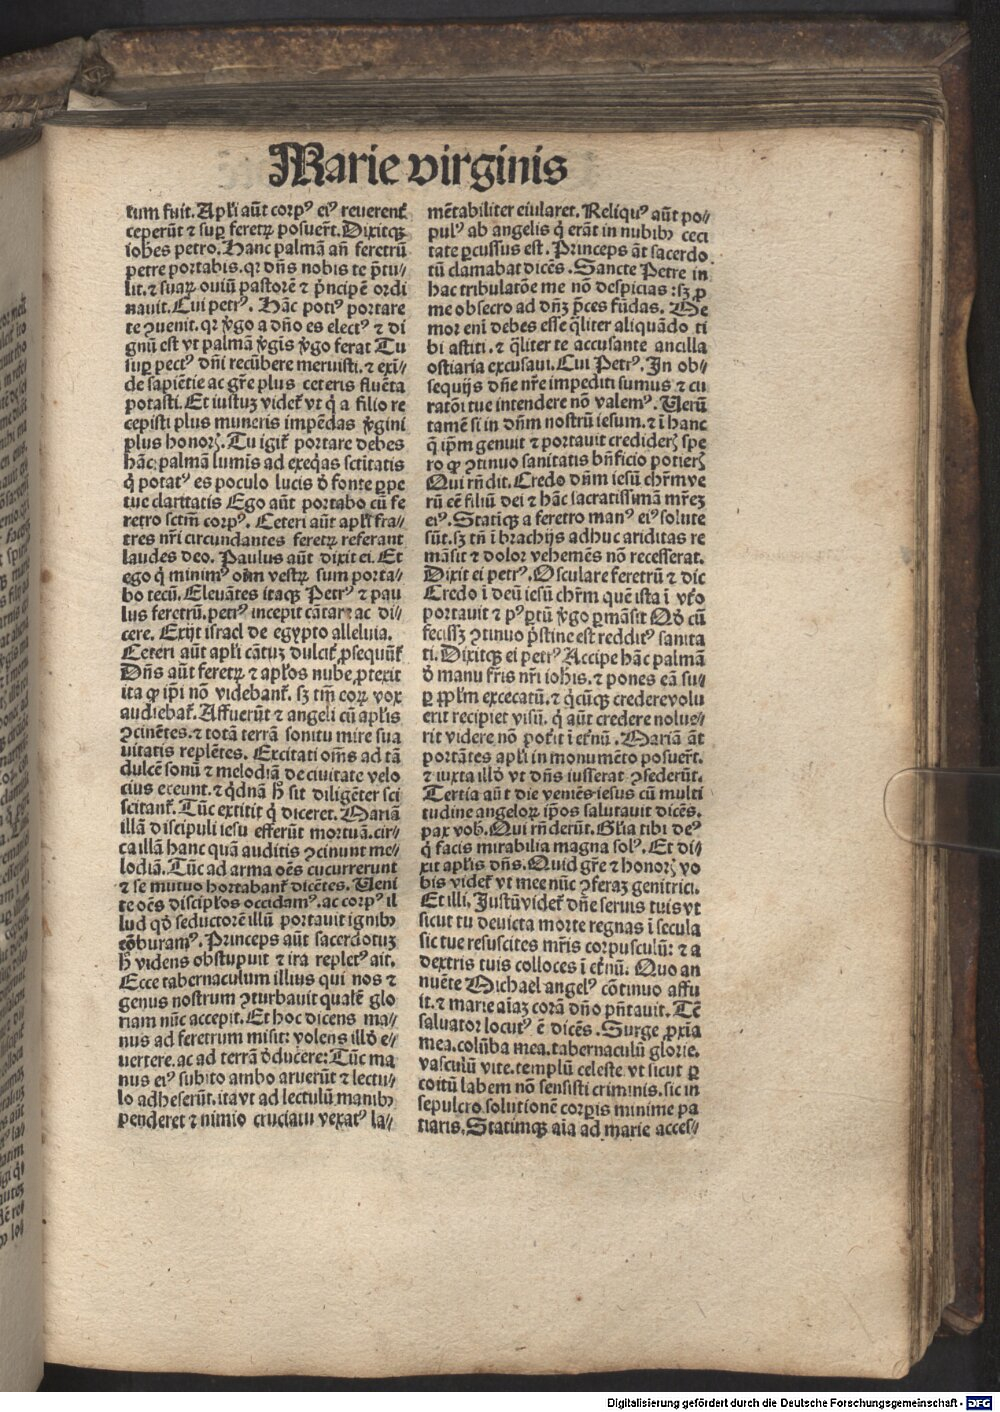 Marie virginis
tum fuit. Apl'i aūt corpꝰ eiꝰ reuerent᷑
ceperūt ⁊ suꝑ feretꝝ posuer̄t. Dixitqꝫ
ioh̄es petro. Hanc palmā añ feretrū
petre portabis. qꝛ dn̄s nobis te p̄tu⸗
lit. ⁊ suaꝝ ouiū pastorē ⁊ pͥncipē ordi
nauit. Cui petrꝰ. Hāc potiꝰ portare
te ꝯuenit. qꝛ v̄go a dn̄o es electꝰ ⁊ di
gnū est vt palmā v̄gīs v̄go ferat Tu
suꝑ pectꝰ dn̄i recūbere meruisti. ⁊ exī⸗
de sapiētie ac gr̄e plus ceteris fluēta
potasti. Et iustuꝫ videt᷑ vt q̇ a filio re
cepisti plus muneris impēdas v̄gini
plus honorꝭ. Tu igit᷑ portare debes
hāc palmā lumīs ad exeq̇as sctītatis
q̇ potatꝰ es poculo lucis d̓ fonte ꝑpe
tue claritatis Ego aūt portabo cū fe
retro sctm̄ corpꝰ. Ceteri aūt apl'i fra⸗
tres nr̄i circundantes feretꝝ referant
laudes deo. Paulus aūt dixit ei. Et
ego q̇ minimꝰ oīm vestꝝ sum porta⸗
bo tecū. Eleuātes itaqꝫ Petrꝰ ⁊ pau
lus feretrū. petrꝰ incepit cātare ac di⸗
cere. Exijt israel de egypto alleluia.
Ceteri aūt apl'i cātuꝫ dulcit᷑ ꝓsequūt᷑
Dn̄s aūt feretꝝ ⁊ apl'os nube ꝓtexit
ita ꝙ ip̄i nō videbant᷑. sꝫ tm̄ coꝝ vox
audiebat᷑. Affuerūt ⁊ angeli cū apl'is
ꝯcinētes. ⁊ totā terrā sonitu mire sua
uitatis replētes. Excitati om̄s ad tā
dulcē sonū ⁊ melodiā de ciuitate velo
cius exeunt. ⁊ q̇dnā h̄ sit diligēter sci
scitant᷑. Tūc extitit q̇ diceret. Mariā
illā discipuli iesu efferūt mortuā. cir⸗
ca illā hanc quā auditis ꝯcinunt me⸗
lodiā. Tūc ad arma oēs cucurrerunt
⁊ se mutuo hortabant᷑ dicētes. Ueni
te oēs discipl'os occidamꝰ. ac corpꝰ il
lud qd̓ seductorē illū portauit ignibꝫ
cōburamꝰ. Princeps aūt sacerdotuꝫ
h̄ videns obstupuit ⁊ ira repletꝰ ait.
Ecce tabernaculum illius qui nos ⁊
genus nostrum ꝯturbauit qualē glo
riam nūc accepit. Et hoc dicens ma⸗
nus ad feretrum misit: volens illd̓ e⸗
uertere. ac ad terrā d̓ducere: Tūc ma
nus eiꝰ subito ambo aruerūt ⁊ lectu⸗
lo adheserūt. itavt ad lectulū manibꝫ
penderet ⁊ nimio cruciatu vexatꝰ la⸗
mētabiliter eiularet. Reliquꝰ aūt po⸗
pulꝰ ab angelis q̇ erāt in nubibꝫ ceci
tate ꝑcussus est. Princeps āt sacerdo
tū clamabat dicēs. Sancte Petre in
hac tribulatōe me nō despicias: sꝫ ꝓ
me obsecro ad dn̄ꝫ p̄ces fūdas. Me
mor eni debes esse q̄liter aliquādo ti
bi astiti. ⁊ q̄liter te accusante ancilla
ostiaria excusaui. Cui Petrꝰ. In ob⸗
sequijs dn̄e nr̄e impediti sumus ⁊ cu
ratōi tue intendere nō valemꝰ. Uerū
tamē si in dn̄m nostrū iesum. ⁊ ī hanc
q̄ ip̄m genuit ⁊ portauit crediderꝭ spe
ro ꝙ ꝯtinuo sanitatis bn̄ficio potierꝭ
Qui rn̄dit. Credo dn̄m iesū chr̄m ve
rū eē filiū dei ⁊ hāc sacratissimā mr̄eꝫ
eiꝰ. Statiqꝫ a feretro manꝰ eiꝰ solute
sūt. sꝫ tn̄ ī brachijs adhuc ariditas re
māsit ⁊ dolor vehemēs nō recesserat.
Dixit ei petrꝰ. Osculare feretrū ⁊ dic
Credo ī deū iesū chr̄m quē ista ī vt̓o
portauit ⁊ pꝰ ꝑtū v̄go ꝑmāsit Qd̓ cū
fecissꝫ ꝯtinuo pͥstine est redditꝰ sanita
ti. Dixitqꝫ ei petrꝰ Accipe hāc palmā
d̓ manu fr̄is nr̄i ioh̄is. ⁊ pones eā su⸗
ꝑ ppl'm excecatū. ⁊ q̇cūqꝫ credere volu
erit recipiet visū. q̇ aūt credere nolue⸗
rit videre nō pot᷑it ī et᷑nū. Mariā āt
portātes apl'i in monumēto posuer̄t.
⁊ iuxta illd̓ vt dn̄s iusserat ꝯsederūt.
Tertia aūt die veniēs iesus cū multi
tudine angeloꝝ ip̄os salutauit dicēs.
pax vob̄. Qui rn̄derūt. Gl'ia tibi deꝰ
q̇ facis mirabilia magna solꝰ. Et di⸗
xit apl'is dn̄s. Quid gr̄e ⁊ honorꝭ vo
bis videt᷑ vt mee nūc ꝯferaꝫ genitrici.
Et illi. Justū videt᷑ dn̄e seruis tuis vt
sicut tu deuicta morte regnas ī secula
sic tue resuscites mr̄is corpusculū: ⁊ a
dextris tuis colloces ī et᷑nū. Quo an
nuēte Michael angelꝰ cōtinuo affu
it. ⁊ marie aīaꝫ corā dn̄o pn̄tauit. Tūc
saluator locutꝰ ē dicēs. Surge ꝓxīa
mea. colūba mea. tabernaculū glorie.
vasculū vite. templū celeste. vt sicut ꝑ
coitū labem nō sensisti criminis. sic in
sepulcro solutionē corꝑis minime pa
tiaris. Statimqꝫ aīa ad marie acces⸗
Digitalisierung gefördert durch die Deutsche Forschungsgemeinschaft - DFG